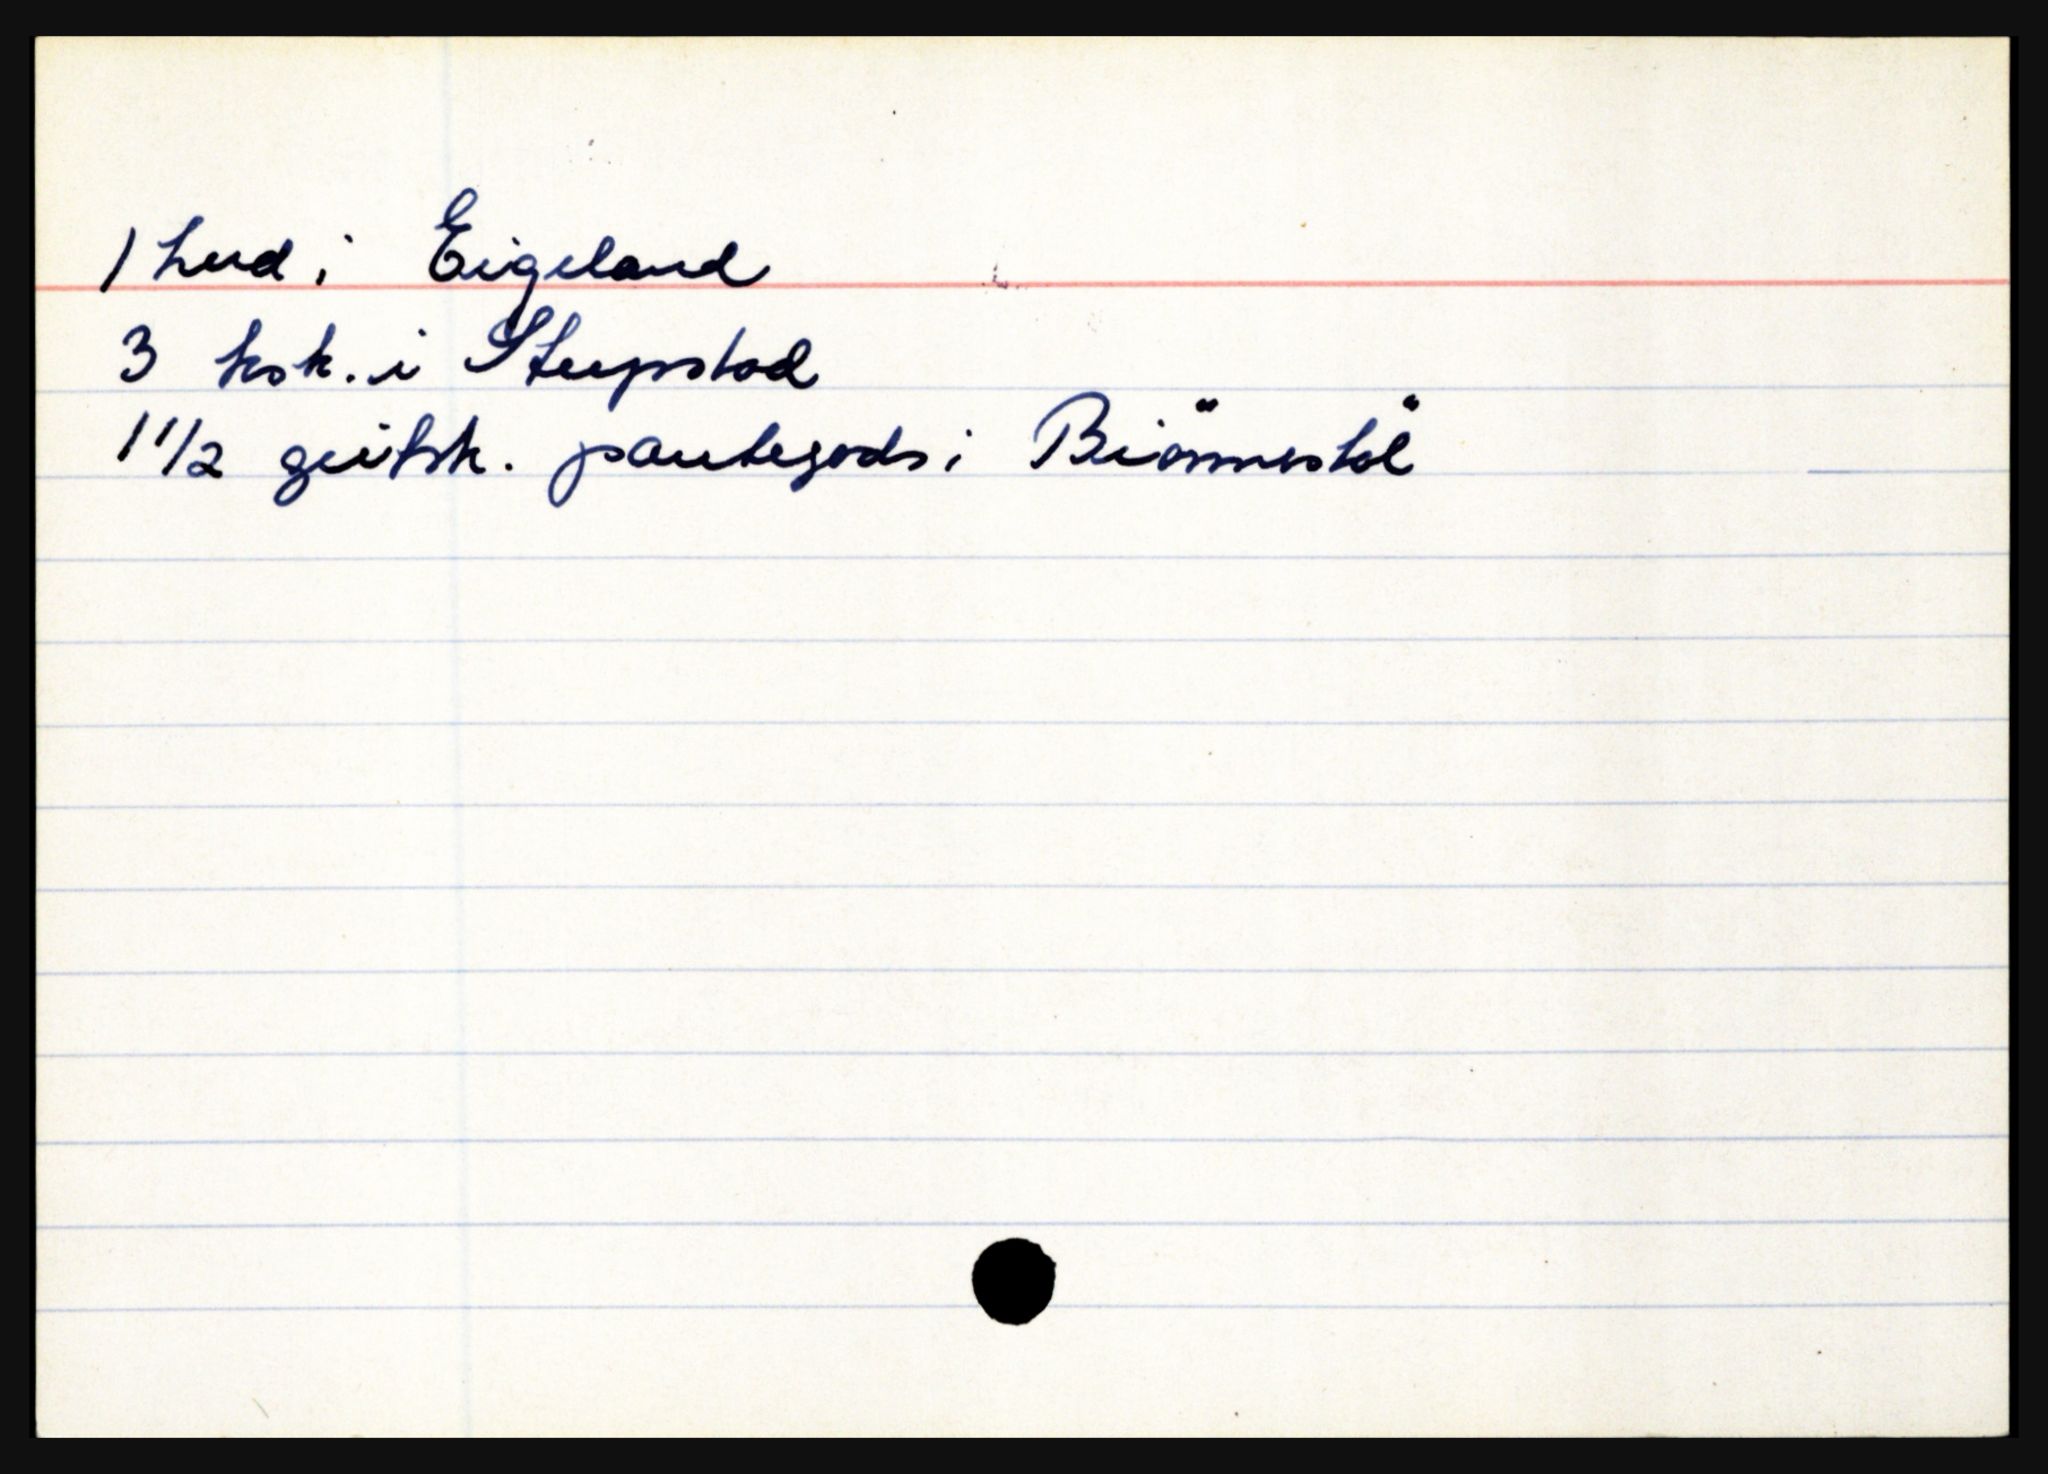 1 hud i Eigeland
3 ksk. i Steepstad
1 1/2 geitsk. pantegods i Biörnestöl